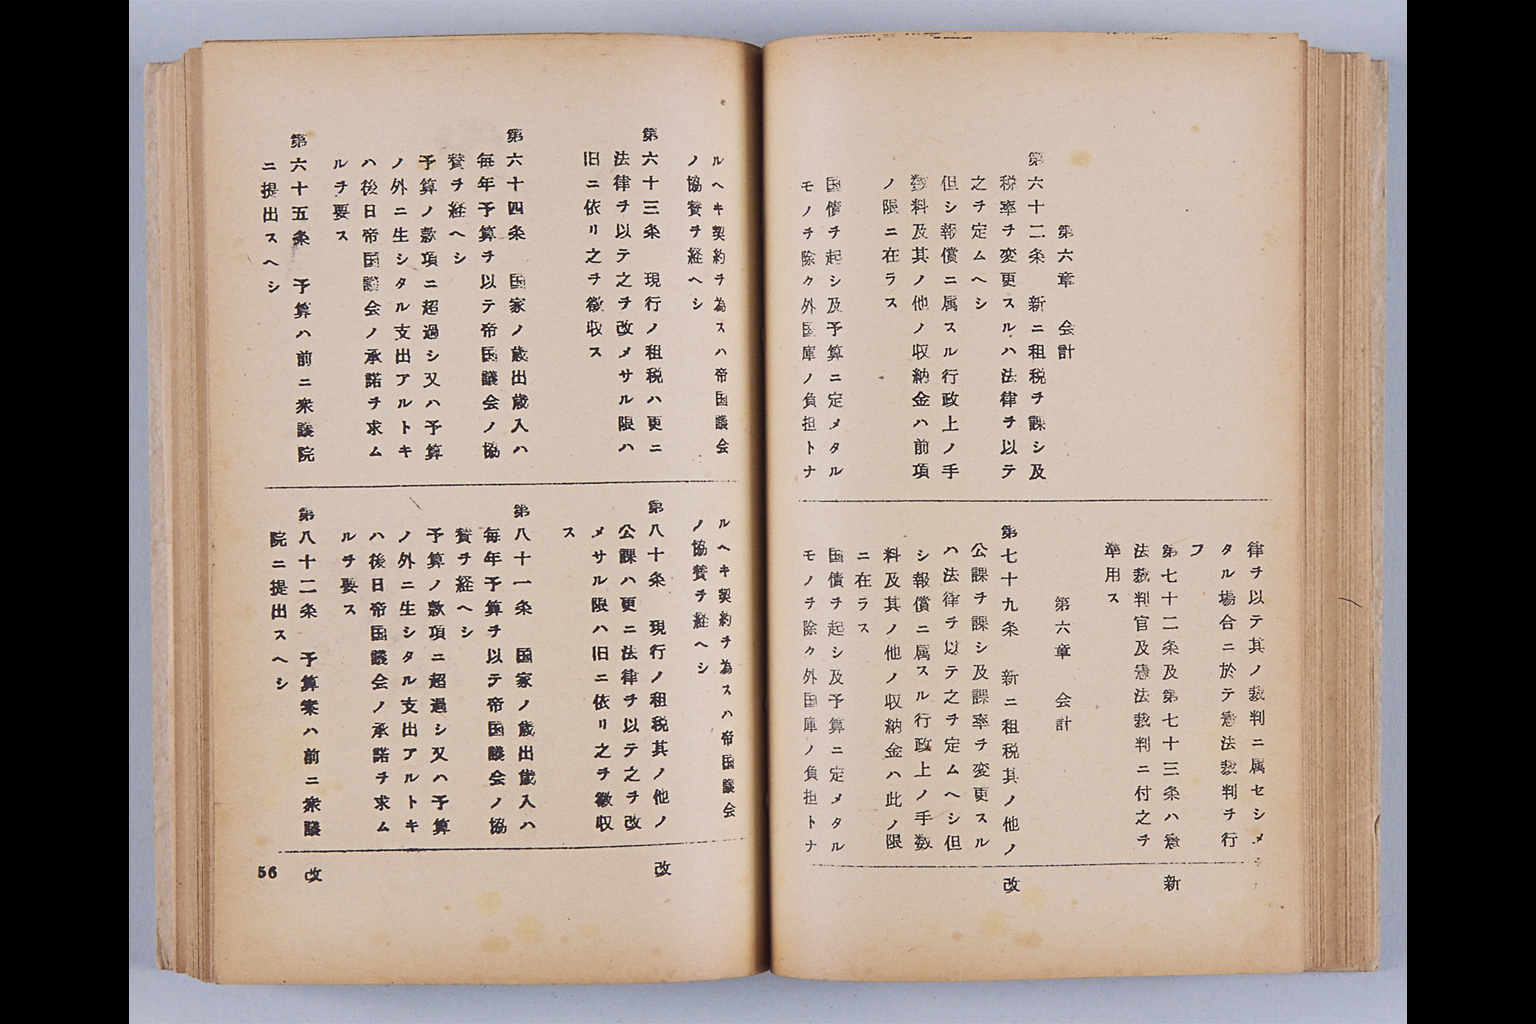 第六章　会計
第六十二条　新ニ租税ヲ課シ及
税率ヲ変更スルハ法律ヲ以テ
之ヲ定ムヘシ
但シ報償ニ属スル行政上ノ手
数料及其ノ他ノ収納金ハ前項
ノ限ニ在ラス
国債ヲ起シ及予算ニ定メタル
モノヲ除ク外国庫ノ負担トナ
律ヲ以テ其ノ裁判ニ属セシメ
タル場合ニ於テ憲法裁判ヲ行
フ
第七十二条及第七十三条ハ憲
法裁判官及憲法裁判ニ付之ヲ
準用ス
新
第六章　会計
第七十九条　新ニ租税其ノ他ノ
公課ヲ課シ及課率ヲ変更スル
ハ法律ヲ以テ之ヲ定ムヘシ但
シ報償ニ属スル行政上ノ手数
料及其ノ他ノ収納金ハ此ノ限
ニ在ラス
国債ヲ起シ及予算ニ定メタル
モノヲ除ク外国庫ノ負担トナ
改
ルヘキ契約ヲ為スハ帝国議会
ノ協賛ヲ経ヘシ
第六十三条　現行ノ租税ハ更ニ
法律ヲ以テ之ヲ改メサル限ハ
旧ニ依リ之ヲ徴収ス
第六十四条　国家ノ歳出歳入ハ
毎年予算ヲ以テ帝国議会ノ協
賛ヲ経ヘシ
予算ノ款項ニ超過シ又ハ予算
ノ外ニ生シタル支出アルトキ
ハ後日帝国議会ノ承諾ヲ求ム
ルヲ要ス
第六十五条　予算ハ前ニ衆議院
ニ提出スヘシ
ルヘキ契約ヲ為スハ帝国議会
ノ協賛ヲ経ヘシ
第八十条　現行ノ租税其ノ他ノ
公課ハ更ニ法律ヲ以テ之ヲ改
メサル限ハ旧ニ依リ之ヲ徴収
ス
改
第八十一条　国家ノ歳出歳入ハ
毎年予算ヲ以テ帝国議会ノ協
賛ヲ経ヘシ
予算ノ款項ニ超過シ又ハ予算
ノ外ニ生シタル支出アルトキ
ハ後日帝国議会ノ承諾ヲ求ム
ルヲ要ス
第八十二条　予算案ハ前ニ衆議
院ニ提出スヘシ
改
56